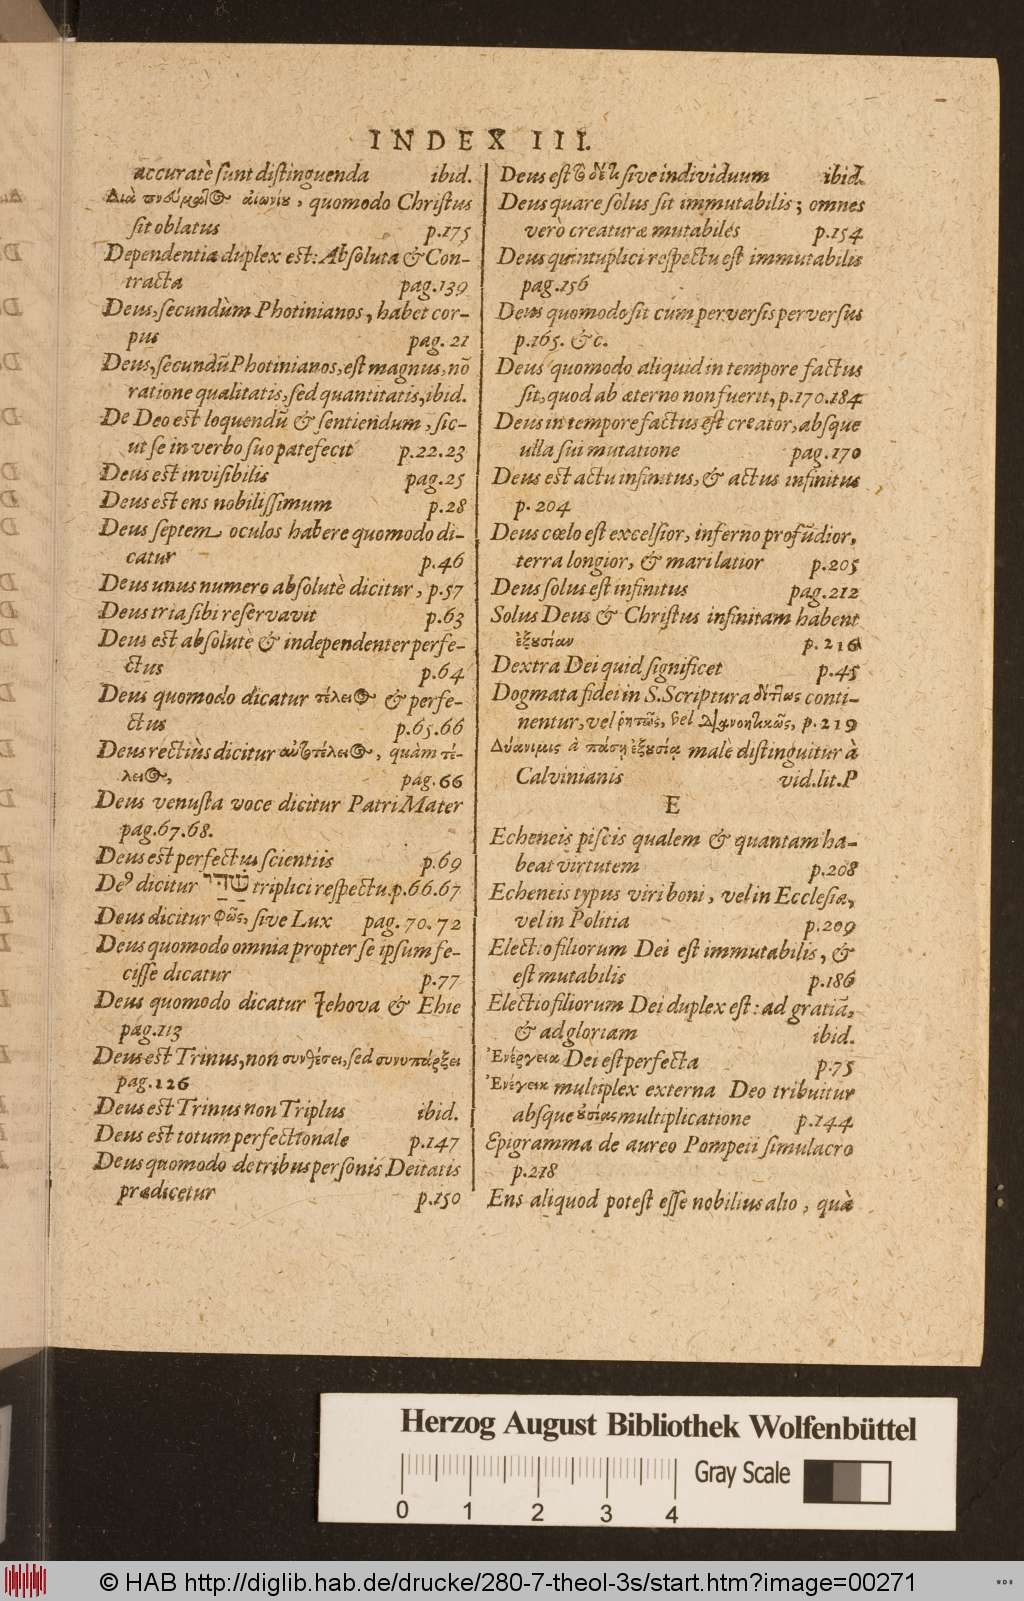 INDEX III.
accuratè sunt distinguenda ibid.
Διὰ πνεύματος αἰωνίου, quomodo Christus
sit oblatus p.175
Dependentia duplex est: Absoluta & Con-
tracta pag.139
Deus, secundùm Photinianos, habet cor-
pus pag. 21
Deus, secundũ Photinianos, est magnus, nõ
ratione qualitatis, sed quantitatis, ibid.
De Deo est loquendũ & sentiendum, sic-
ut se in verbo suo patefecit p.22.23
Deus est invisibilis pag.25
Deus est ens nobilissimum p.28
Deus septem oculos habere quomodo di-
catur p.46
Deus unus numero absolutè dicitur, p.57
Deus tria sibi reservavit p.63
Deus est absolutè & independenter perfe-
ctus p.64
Deus quomodo dicatur τέλειος & perfe-
ctus p.65.66
Deus rectiùs dicitur αὐτοτέλειος, quàm τέ-
λειος, pag.66
Deus venusta voce dicitur Patri Mater
pag.67.68.
Deus est perfectus scientiis p.69
De9 dicitur שַׁדַּי triplici respectu.p.66.67
Deus dicitur φῶς, sive Lux pag.70.72
Deus quomodo omnia propter se ipsum fe-
cisse dicatur p.77
Deus quomodo dicatur Jehova & Ehie
pag.113
Deus est Trinus, non συνθέσει, sed συνυπάρξει
pag.126
Deus est Trinus non Triplus ibid.
Deus est totum perfectionale p.147
Deus quomodo de tribus personis Deitatis
prædicetur p.150
Deus est sive individuum ibid.
Deus quare solus sit immutabilis; omnes
verò creaturæ mutabiles p.154
Deus quintuplici respectu est immutabilis
pag.156
Deus quomodo sit cum perversis perversus
p.165. &c.
Deus quomodo aliquid in tempore factus
sit, quod ab æterno non fuerit, p.170.184
Deus in tempore factus est creator, absque
ulla sui mutatione pag.170
Deus est actu infinitus, & actus infinitus
p. 204
Deus cœlo est excelsior, inferno profũdior,
terra longior, & mari latior p.205
Deus solus est infinitus pag.212
Solus Deus & Christus infinitam habent
ἐξουσίαν p.216
Dextra Dei quid significet p.45
Dogmata fidei in S.Scriptura conti-
nentur, vel ῥητῶς, vel διανοητικῶς, p.219
Δύναμις à πάσῃ ἐξουσίᾳ malè distinguitur à
Calvinianis vid.lit.P
E
Echeneis piscis qualem & quantam ha-
beat virtutem p.208
Echeneis typus viri boni, vel in Ecclesia,
vel in Politia p.209
Electio filiorum Dei est immutabilis, &
est mutabilis p.186
Electio filiorum Dei duplex est: ad gratiã,
& ad gloriam ibid.
Ἐνέργεια Dei est perfecta p.75
Ἐνέργεια multiplex externa Deo tribuitur
absque οὐσίας multiplicatione p.144
Epigramma de aureo Pompeii simulacro
p.218
Ens aliquod potest esse nobilius alio, quà
Herzog August Bibliothek Wolfenbüttel
Gray Scale
0 1 2 3 4
© HAB http://diglib.hab.de/drucke/280-7-theol-3s/start.htm?image=00271